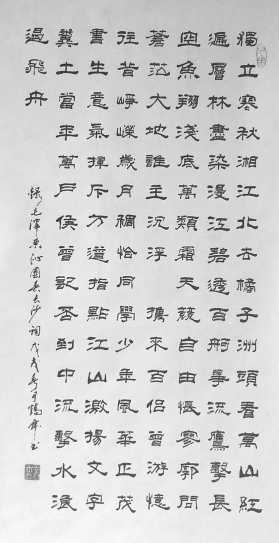 獨立寒秋湘江北去橘子洲頭看萬山紅
遍層林盡染漫江碧透百舸爭流鷹擊長
空魚翔淺底萬類霜天競自由悵寥廓問
蒼茫大地誰主沉浮 攜來百侶曾游憶
往昔崢嶸歲月稠恰同學少年風華正茂
書生意氣揮斥方遒指點江山激揚文字
糞土當年萬戶侯曾記否到中流擊水浪
遏飛舟
錄毛澤東沁園春長沙詞戊戌